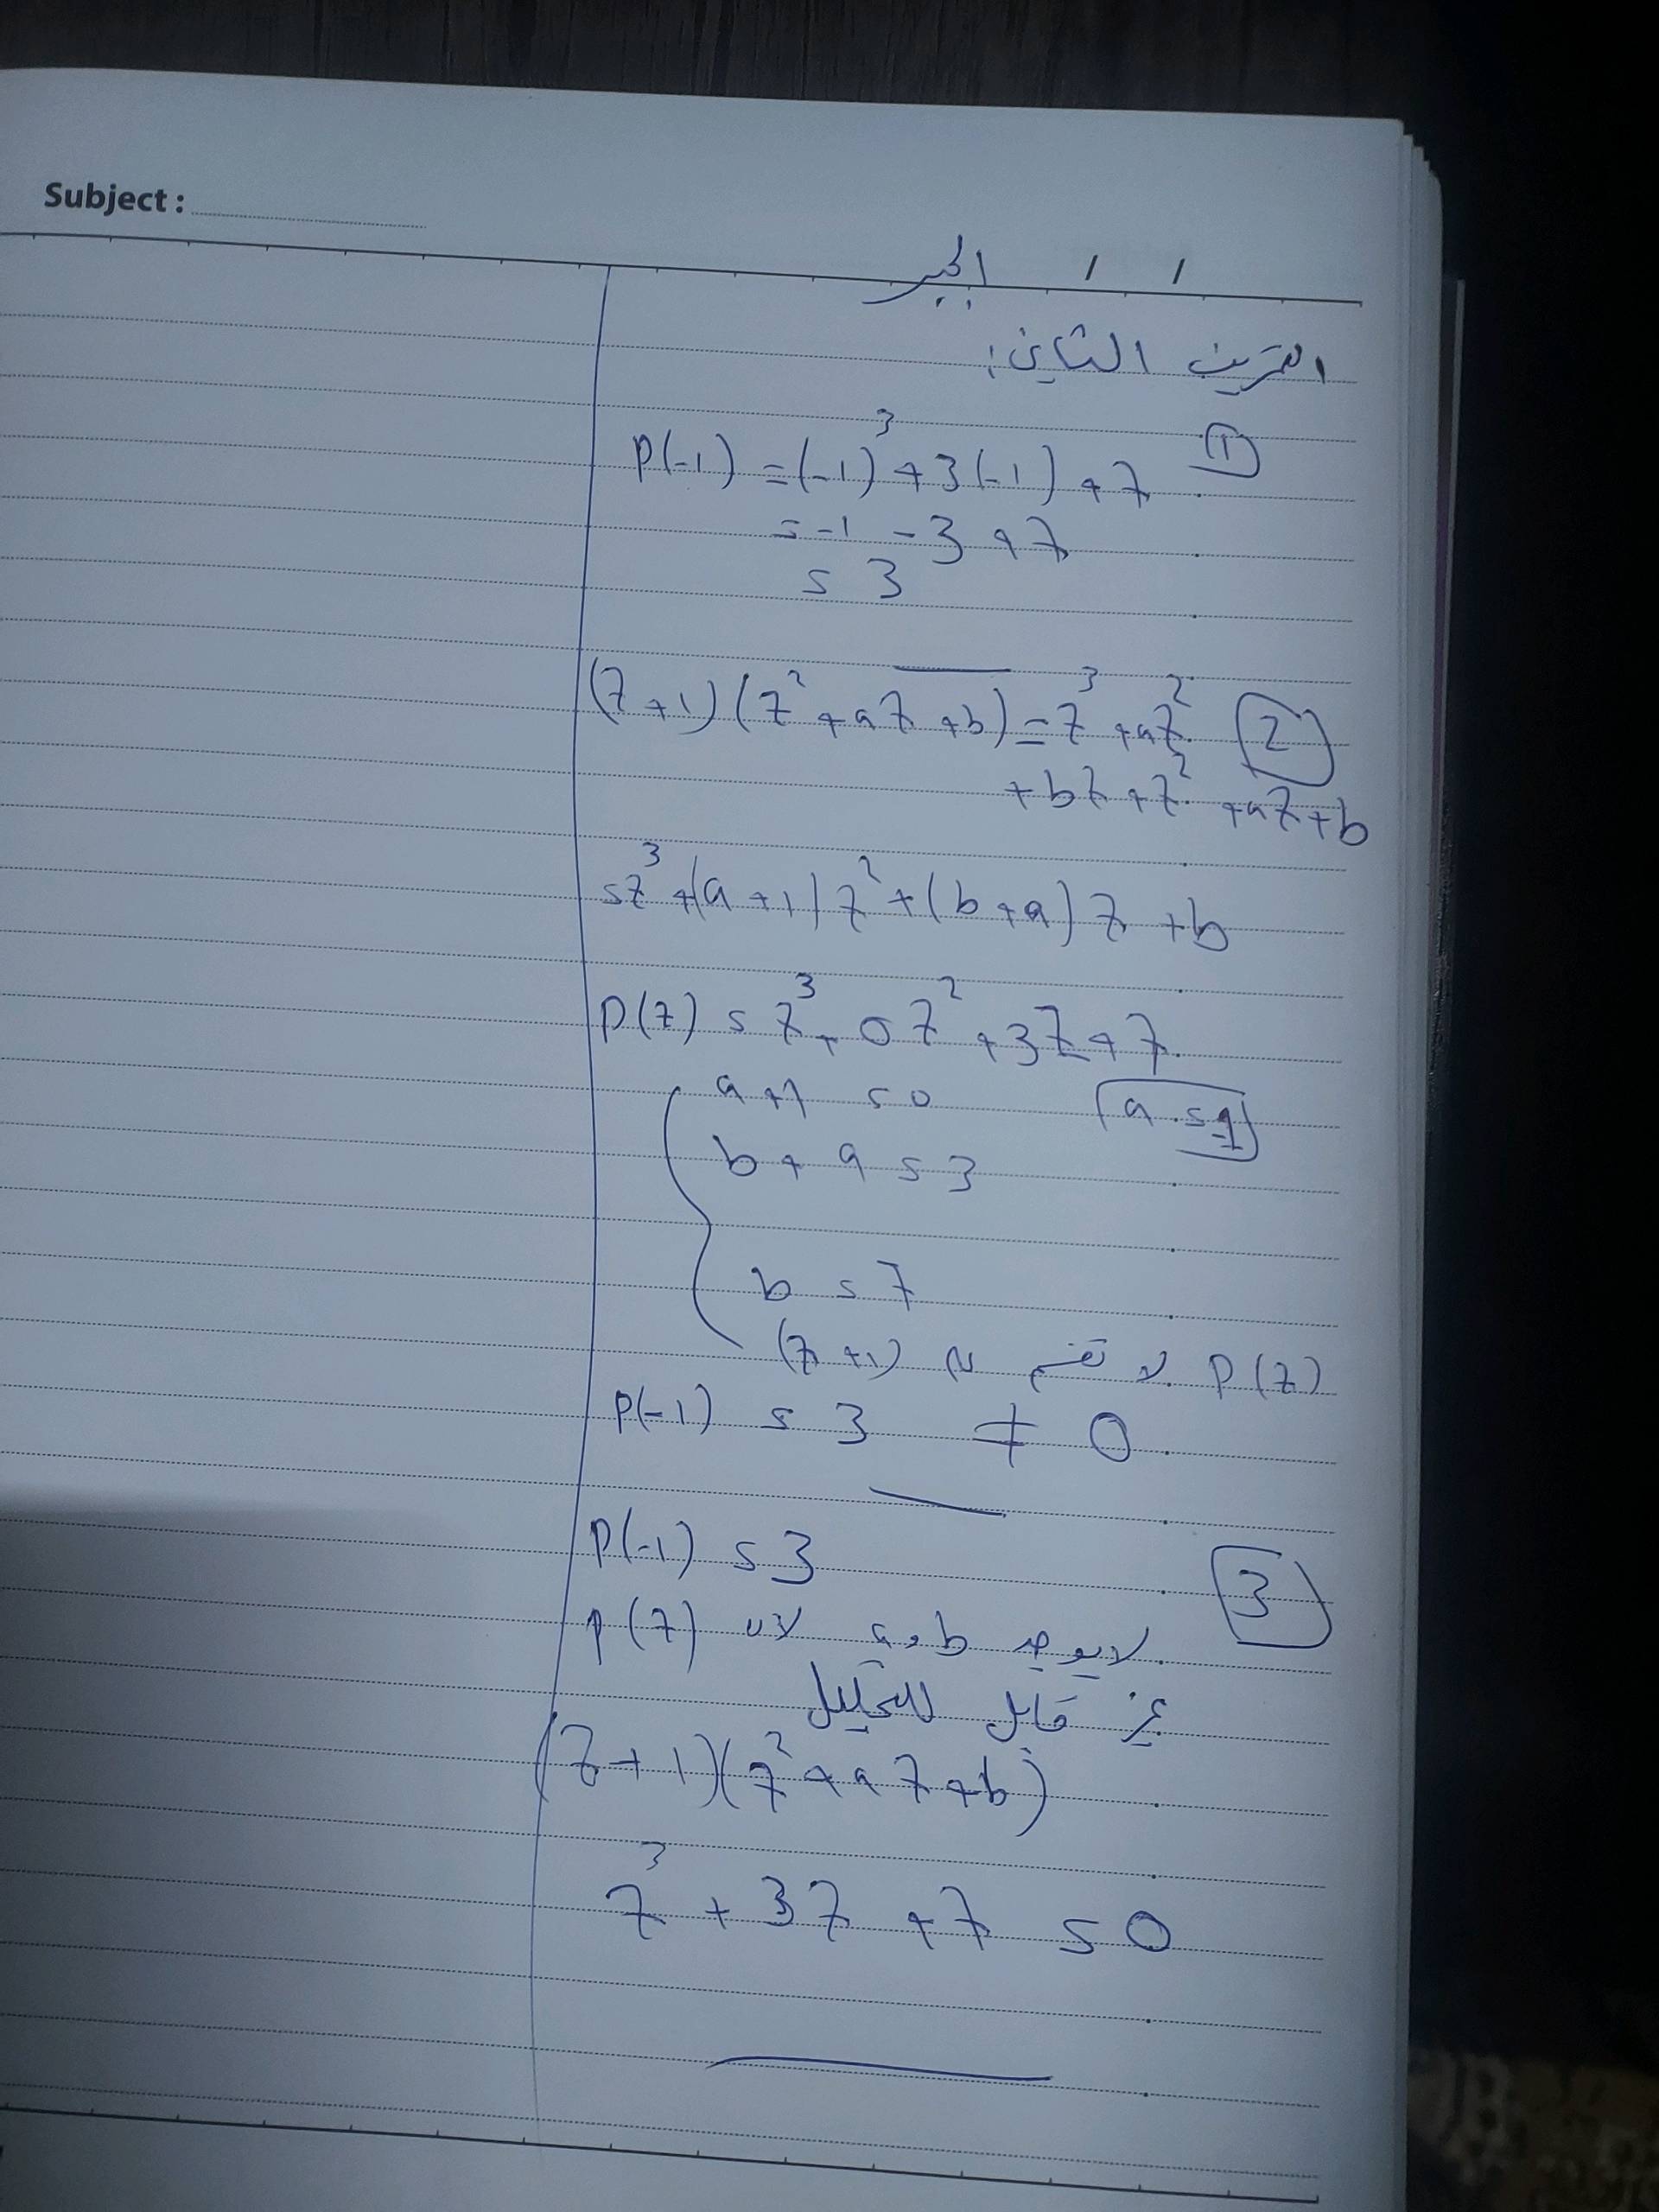 Subject :
/ / الجبر
التمرين الثاني:
① P(-1) = (-1)³ + 3(-1) + 7
= -1 - 3 + 7
= 3
2 (z+1)(z² + az + b) = z³ + az²
+ bz + z² + az + b
= z³ + (a+1)z² + (b+a)z + b
P(z) = z³ + 0z² + 3z + 7
a + 1 = 0 a = -1
b + a = 3
b = 7
P(z) لا تقسم على (z+1)
P(-1) = 3 ≠ 0
3 P(-1) = 3
لا يوجد b و a لان P(z)
غير قابل للتحليل
(z+1)(z² + az + b)
z³ + 3z + 7 = 0